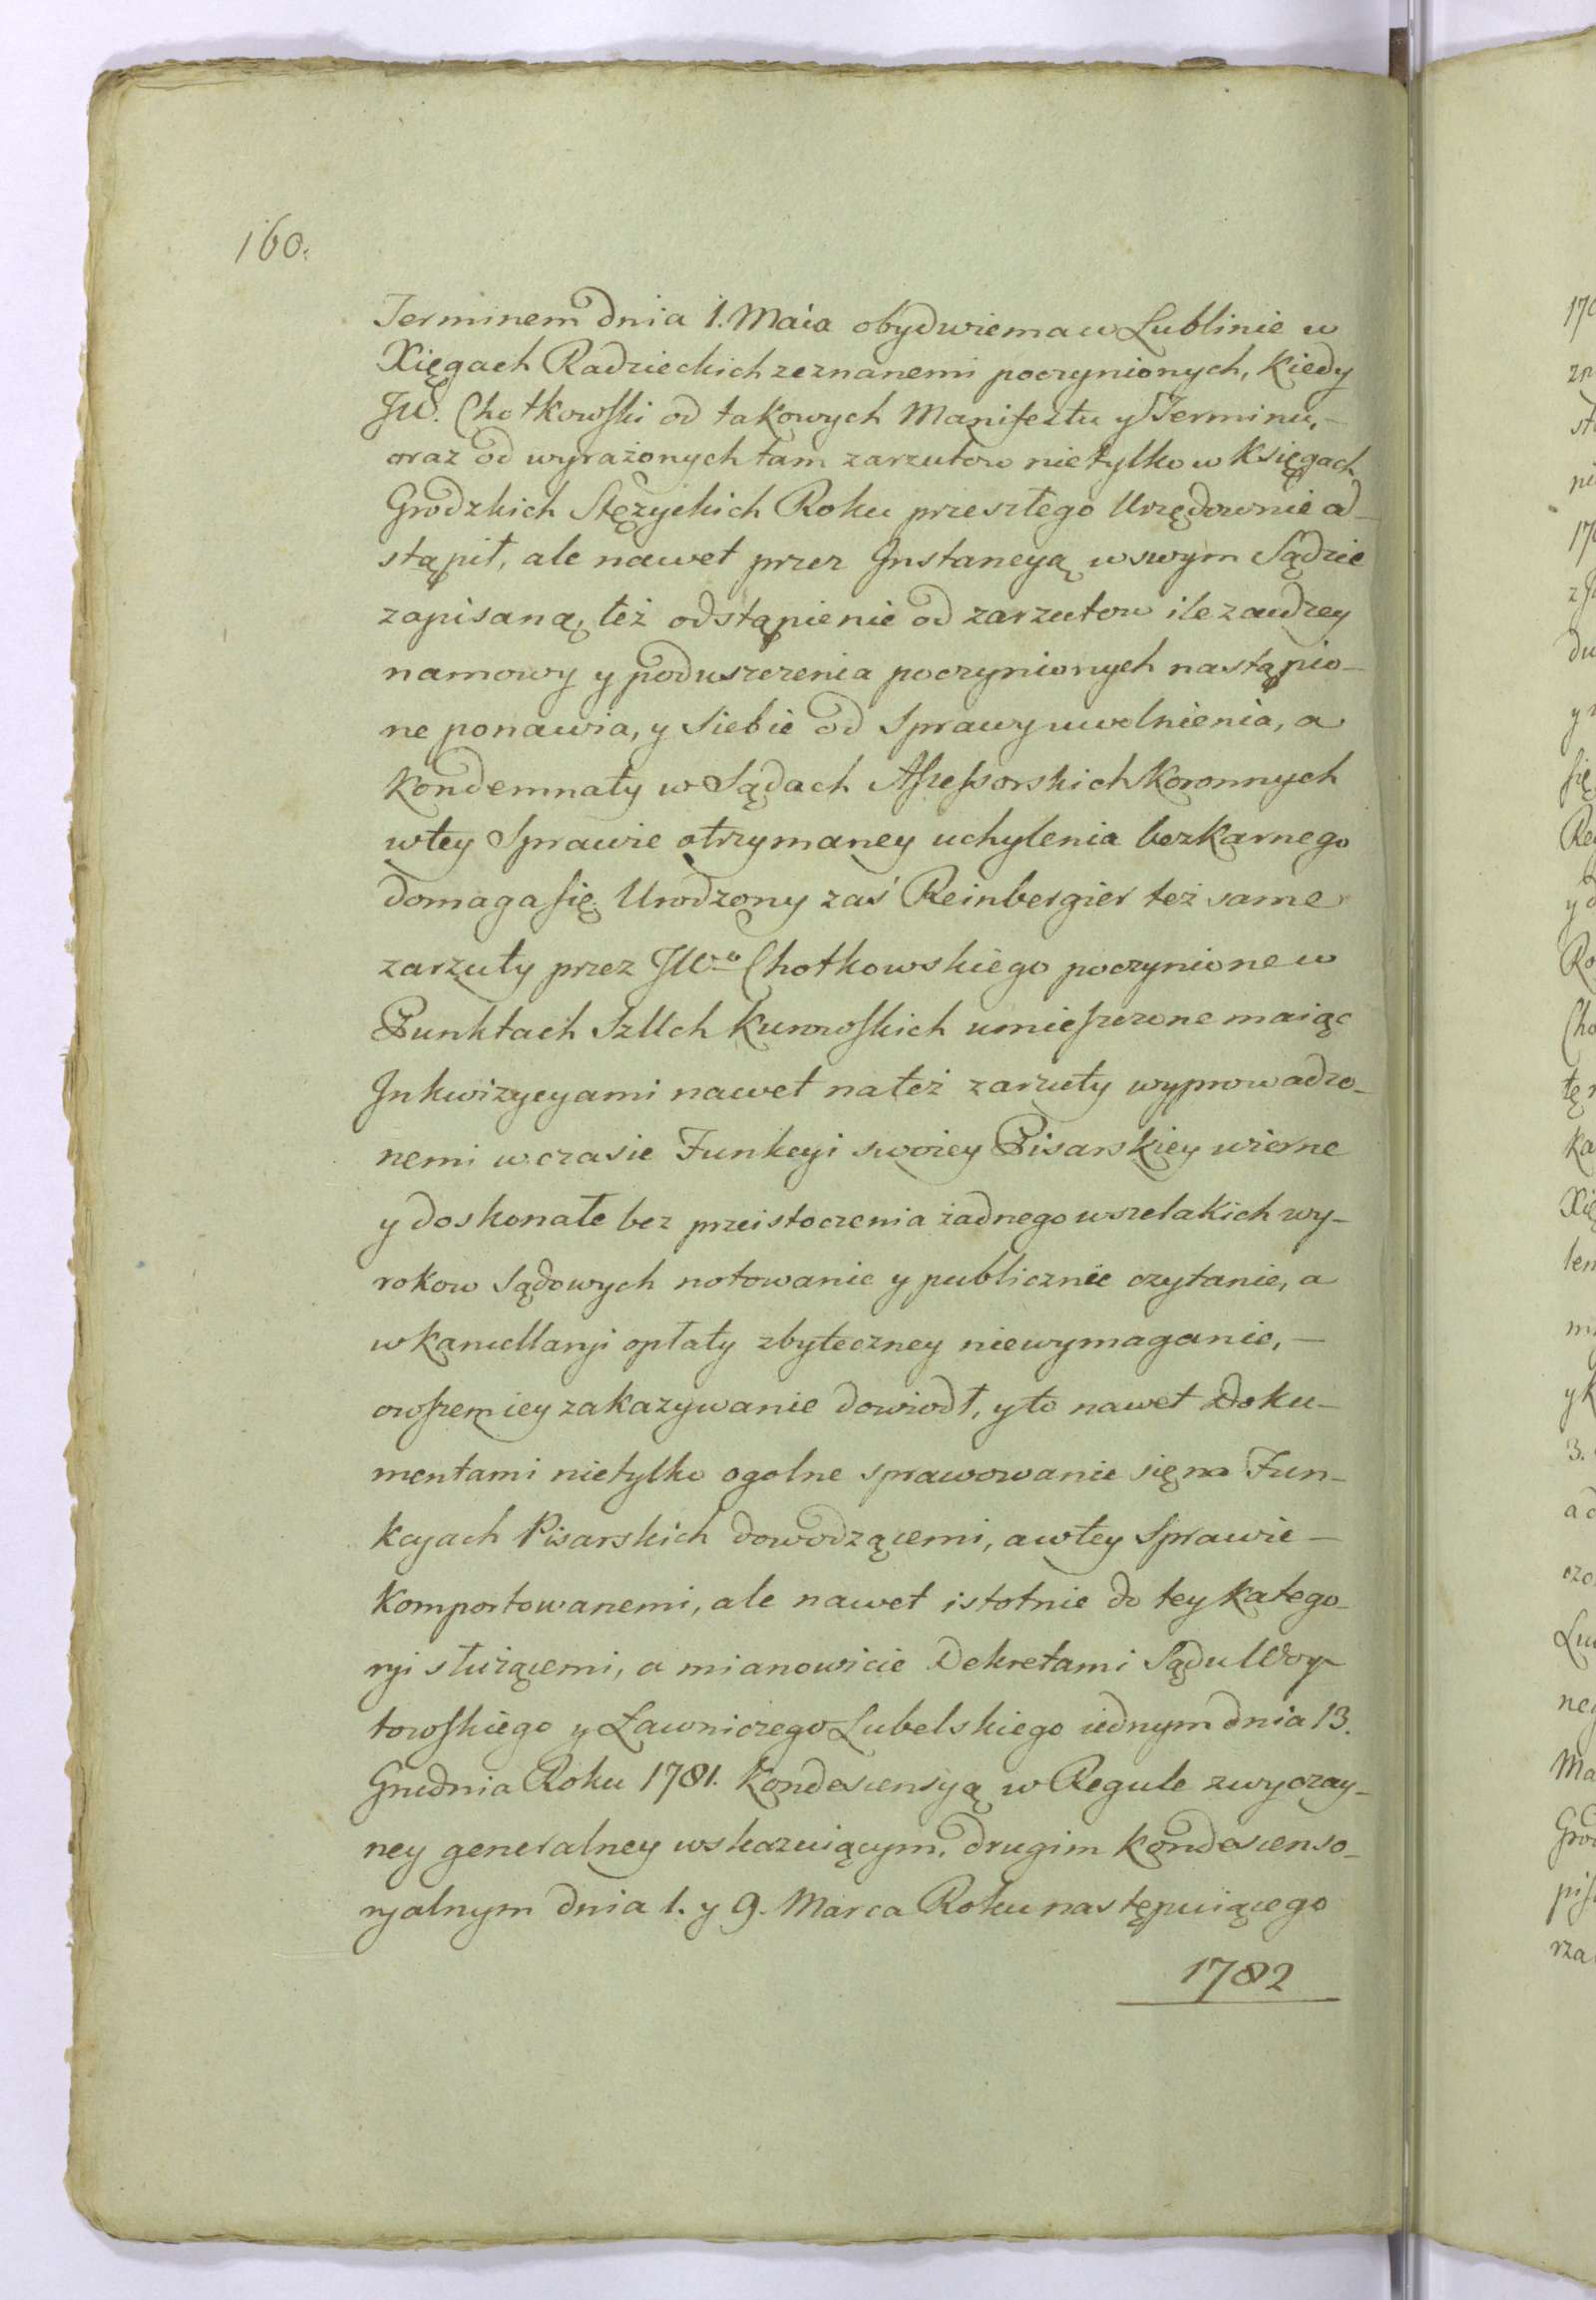 160.
Terminem dnia 1. Maia obydwiema w Lublinie w
Xięgach Radzieckich zeznanemi poczynionych, kiedy
JW. Chotkowski od takowych Manifestu y Terminu,
oraz od wyrażonych tam zarzutow nietylko w Księgach
Grodzkich Stężyckich Roku przeszłego Urzędownie od-
stąpił, ale nawet przez Instancyą w swym Sądzie
zapisaną, też odstąpienie od zarzutow ile z cudzey
namowy y poduszczenia poczynionych nastąpio-
ne ponawia, y siebie od Sprawy uwolnienia, a
Kondemnaty w Sądach Assessorskich Koronnych
w tey Sprawie otrzymaney uchylenia bezkarnego
domaga się. Urodzony zaś Reinbergier też same
zarzuty przez JWo Chotkowskiego poczynione w
Punktach Szllch Kurowskich umieszczone maiąc
Inkwizycyami nawet na też zarzuty wyprowadzo-
nemi w czasie Funkcyi swoiey Pisarskiey wierne
y doskonałe bez przeistoczenia żadnego wszelakich wy-
rokow Sądowych notowanie y publicznie czytanie, a
w Kancellaryi opłaty zbyteczney niewymaganie,
owszem iey zakazywanie dowiodł, y to nawet Doku-
mentami nietylko ogolne sprawowanie się na Fun-
kcyach Pisarskich dowodzącemi, a w tey Sprawie
Komportowanemi, ale nawet istotnie do tey Katego-
ryi służącemi, a mianowicie Dekretami Sądu Woy-
towskiego y Ławniczego Lubelskiego iednym dnia 13.
Grudnia Roku 1781. Kondescensyą w Regule zwyczay-
ney generalney wskazuiącym, drugim Kondescenso-
ryalnym dnia 1. y 9. Marca Roku następuiącego
1782